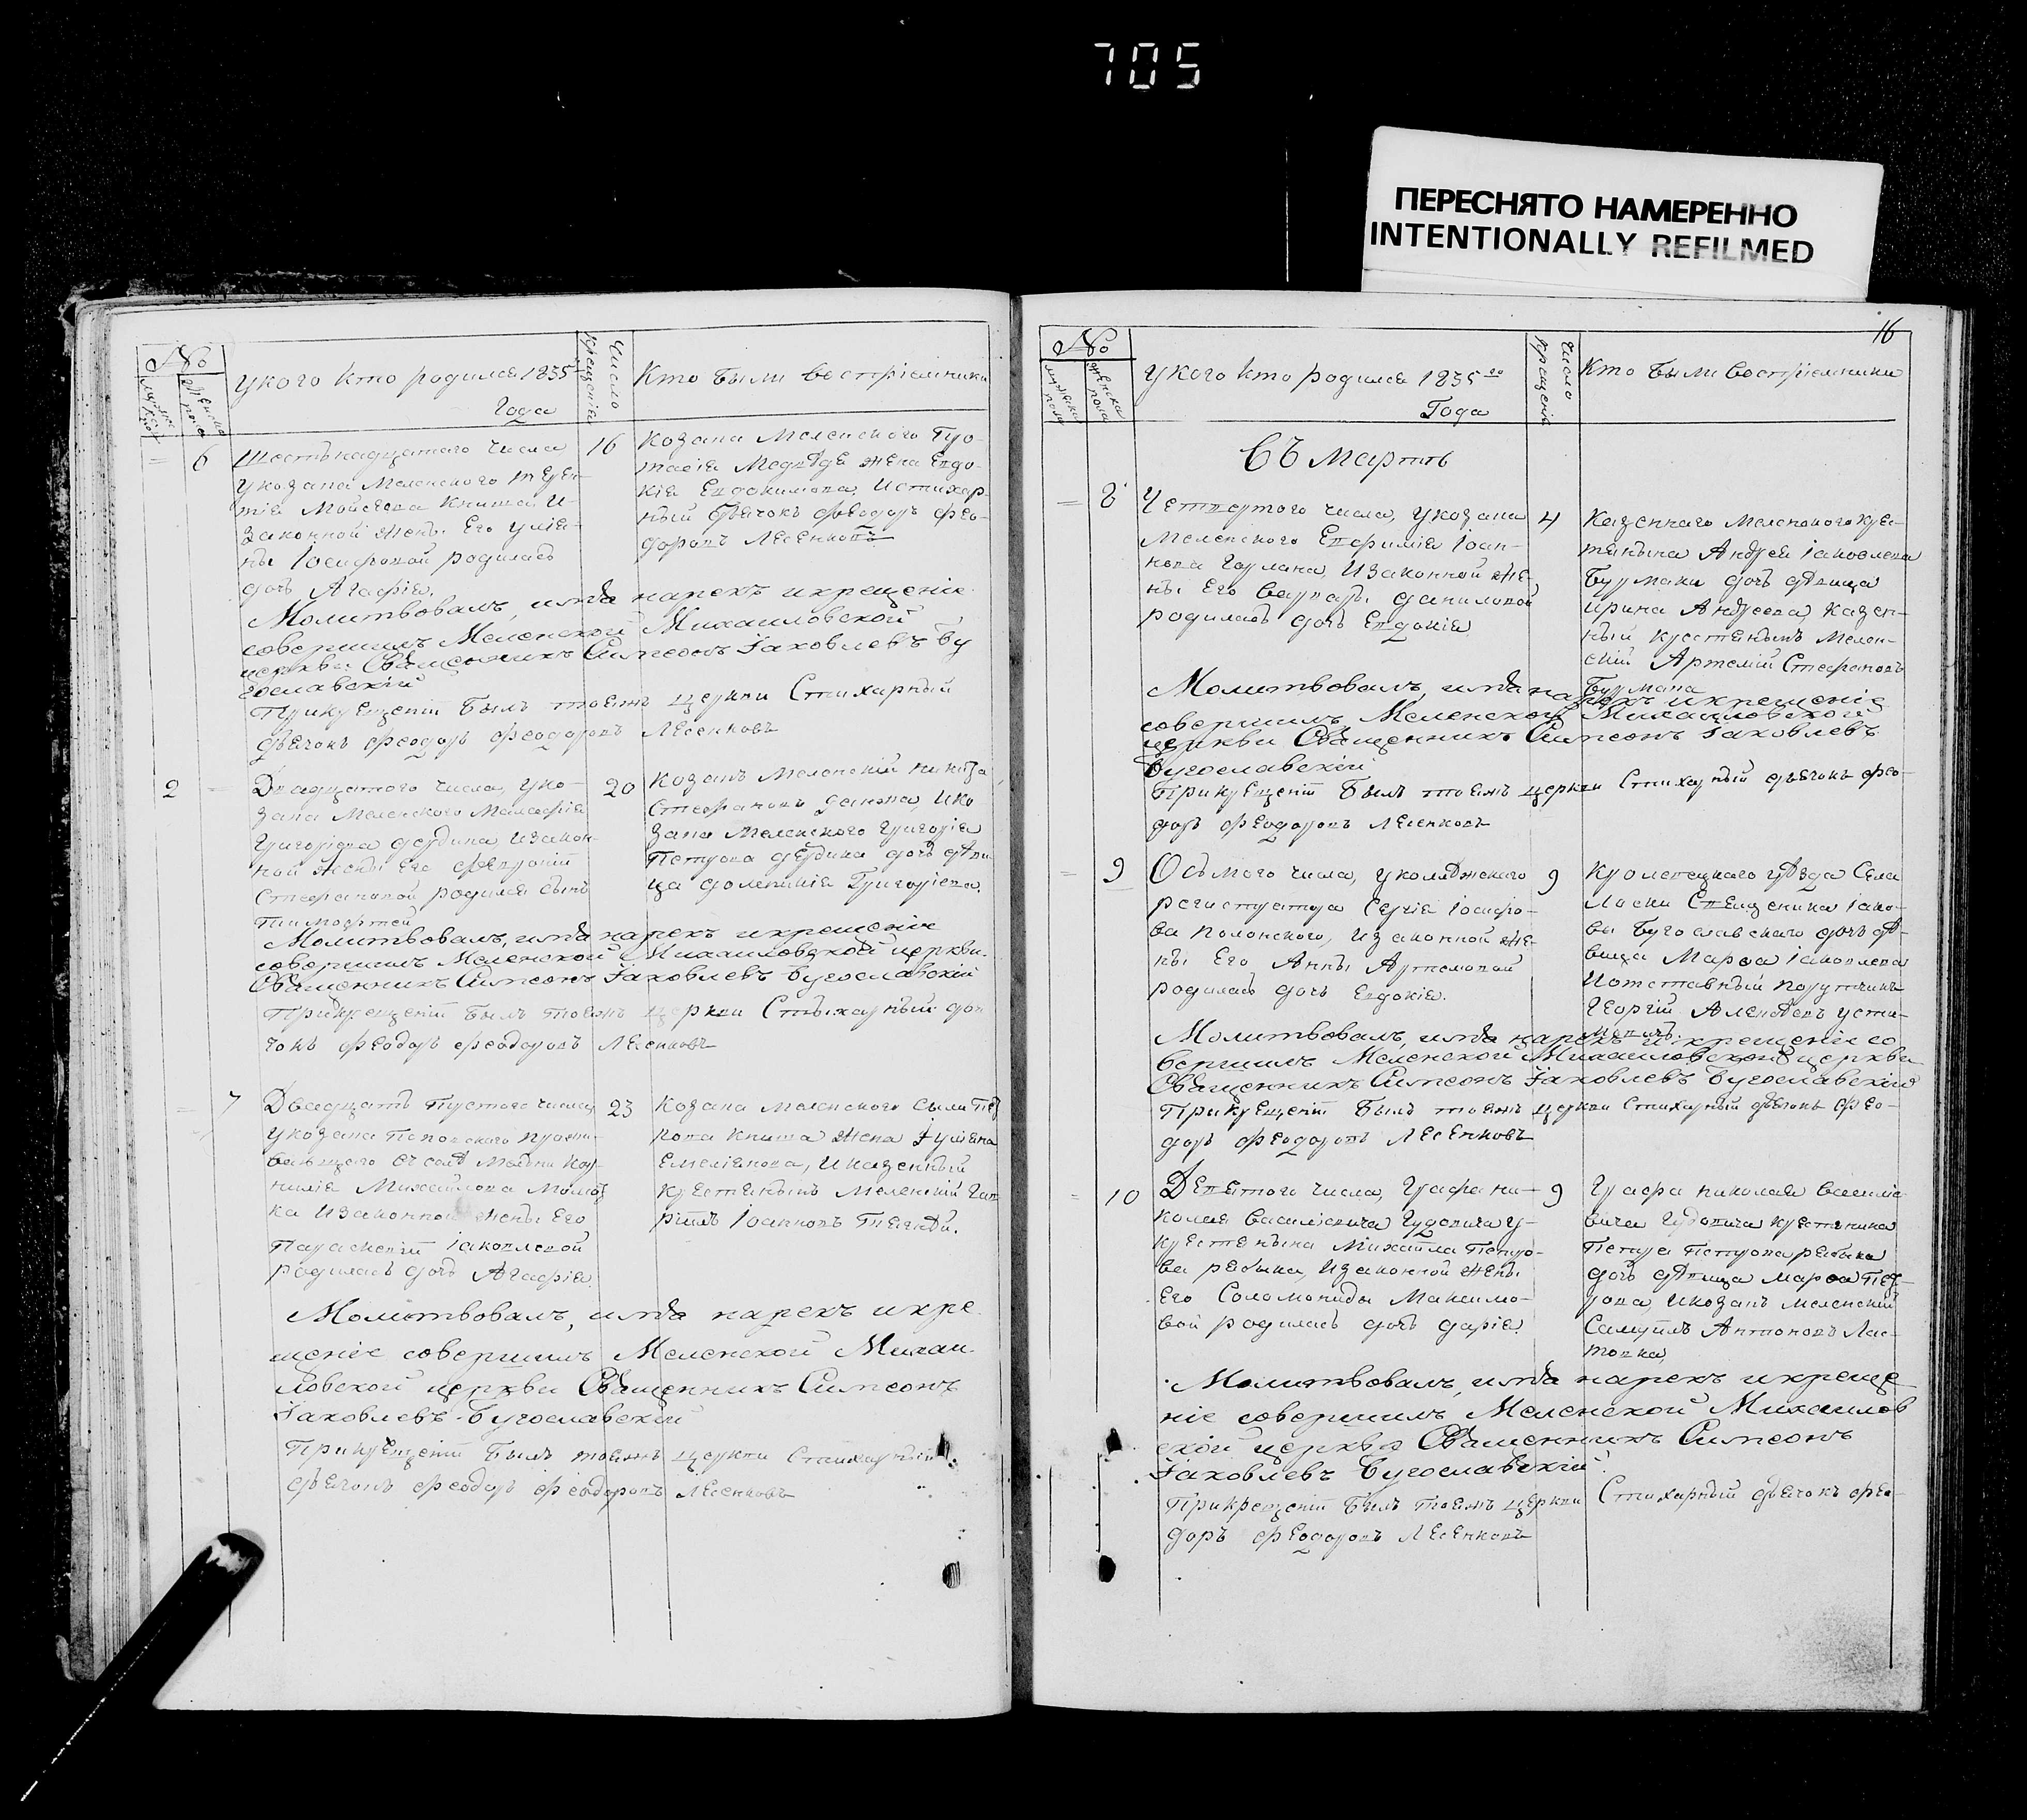 705
ПЕРЕСНЯТО НАМЕРЕННО
INTENTIONALLY REFILMED
№
мужеска пола
женска пола
У кого кто родился 1835
Года
Число крещенія
Кто были воспріемники
6
Шестьнадцатаго числа
у козака Меленского
Мойсеева Книша и
законной жены Его Улія-
ны Іосифовой родилась
дочь Агафія.
16
Козака Меленского
жена Евдо-
кія Евдокимова, и стихар-
ный дьячокъ Феодоръ Фео-
доровъ Лесенковъ
Молитвовалъ, имѣ нарекъ и крещеніе
совершилъ Меленской Михаиловской
церкви Священникъ Симеонъ Іаковлевъ Бу
гославскій
При крещеніи былъ тоежъ церкви Стихарный
дьячокъ Феодоръ Феодоровъ Лесенковъ
2
Двадцатого числа, у ко-
зака Меленского
Григоріева Дедика, и закон-
ной жены Его Февроніи
Стефановой родился сынъ
Тимофтей
20
Козакъ Меленскій Никита
Стефановъ и ко
зака Меленского Григорія
Петрова Дедика дочь дѣви
ца Домникія Григоріева.
Молитвовалъ, имѣ нарекъ и крещеніе
совершилъ Меленской Михаиловской церкви
Священникъ Симеонъ Іаковлевъ Бугославскій
При крещеніи былъ тоежъ церкви Стихарный дья
чокъ Феодоръ Феодоровъ Лесенковъ
7
Двадцать числа
у козака
Михайлова
ка и законной жены Его
Параскевіи Іаковлевой
родилась дочь Агафія
23
Козака Меленского
рова Книша жена Іуліяна
Емеліянова, и казенный
крестьянинъ Меленскій Гав
риилъ Іоанновъ
Молитвовалъ, имѣ нарекъ и кре
щеніе совершилъ Меленской Михаи
ловской церкви Священникъ Симеонъ
Іаковлевъ Бугославскій
При крещеніи былъ тоежъ церкви Стихарный
дьячокъ Феодоръ Феодоровъ Лесенковъ
16
№
мужеска пола
женска пола
У кого кто родился 1835го
Года
Число крещенія
Кто были воспріемники
Въ Мартѣ
8
Четвертого числа, у козака
Меленского Евфимія Іоан-
нова и законной же-
ны Его Варвары Даниловой
родилась дочь Евдокія
4
Казеннаго Меленского кре-
стянина Андрея Іаковлева
Бурмаки дочь дѣвица
Ирина Андреева, казен-
ный крестянинъ Мелен-
скій Артемій Стефановъ
Бурмака
Молитвовалъ, имѣ нарекъ и крещеніе
совершилъ Меленской Михаиловской
церкви Священникъ Симеонъ Іаковлевъ
Бугославскій
При крещеніи былъ тоежъ церкви Стихарный дьячокъ Фео-
доръ Феодоровъ Лесенковъ
9
Осьмого числа, у коледжского
регистратора Сергія Іосифо-
ва Полонского, и законной же-
ны Его Анны Артемовой
родилась дочь Евдокія.
9
Кролевецкаго уѣзда Села
Священика Іако-
ва Бугославскаго дочь дѣ-
вица Марѳа Іаковлева
и отставный порутчикъ
Георгій
Молитвовалъ, имѣ нарекъ и крещеніе со
вершилъ Меленской Михаиловской церкви
Священникъ Симеонъ Іаковлевъ Бугославскій
При крещеніи былъ тоежъ церкви Стихарный дьячокъ Фео-
доръ Феодоровъ Лесенковъ
10
Девятого числа, Графа Ни-
колая Василіевича Гудовича у
крестянина Михайла Петро-
ва Рабика, и законной жены
Его Соломониды Максимо-
вой родилась дочь Дарія.
9
Графа Николая Василіе
вича Гудовича крестянина
Петра Петрова Рабика
дочь дѣвица Марѳа Пет-
рова, и козакъ Меленский
Самуилъ Антоновъ Лас-
товка
Молитвовалъ, имѣ нарекъ и креще
ніе совершилъ Меленской Михаилов
ской церкви Священникъ Симеонъ
Іаковлевъ Бугославскій.
При крещеніи былъ тоежъ церкви Стихарный дьячокъ Фео-
доръ Феодоровъ Лесенковъ